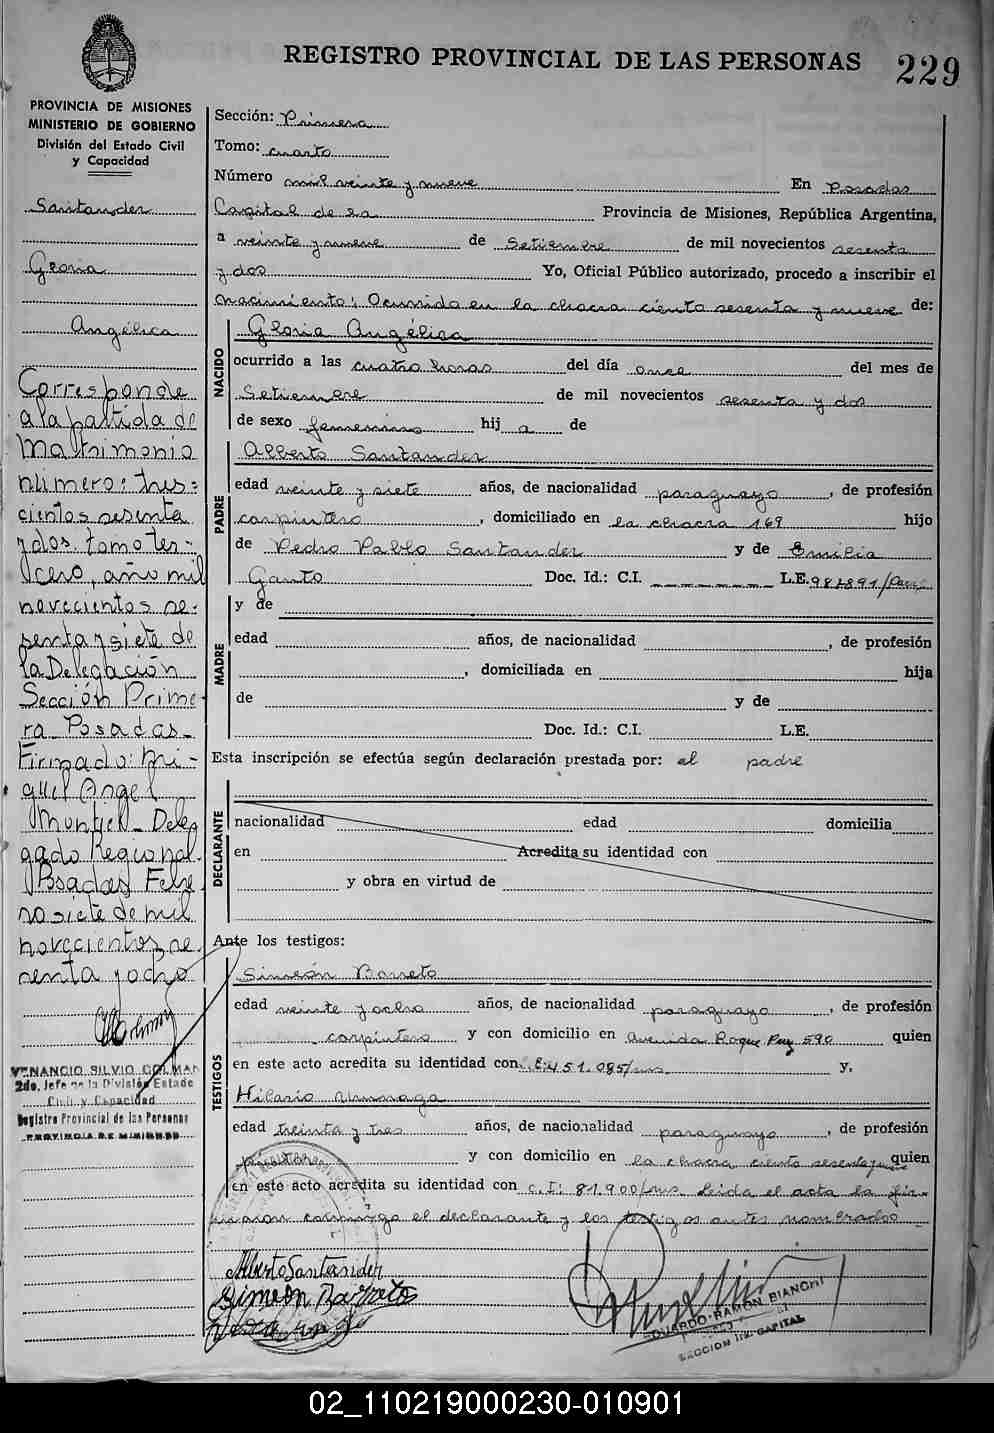 REGISTRO PROVINCIAL DE LAS PERSONAS
229
PROVINCIA DE MISIONES
MINISTERIO DE GOBIERNO
División del Estado Civil
y Capacidad
Santander
Gloria
Angélica
Corresponde
a la partida de
Matrimonio
número: tres-
cientos sesenta
y dos. tomo ter-
cero, año mil
novecientos se-
senta y siete de
la Delegación
Sección Prime-
ra Posadas-
Firmado: Mi-
guel Angel
Montiel- Dele
gado Regional.
Posadas Febre
ro siete de mil
novecientos se-
senta y ocho
VENANCIO SILVIO COLMAN
2do. Jefe de la División Estado
Civil y Capacidad
Registro Provincial de las Personas
PROVINCIA DE MISIONES
Sección: Primera
Tomo: cuarto
Número mil veinte y nueve En Posadas
Capital de la Provincia de Misiones, República Argentina,
a veinte y nueve de Setiembre de mil novecientos sesenta
y dos Yo, Oficial Público autorizado, procedo a inscribir el
nacimiento: Ocurrido en la chacra ciento sesenta y nueve de:
NACIDO
Gloria Angélica
ocurrido a las cuatro horas del día once del mes de
Setiembre de mil novecientos sesenta y dos
de sexo femenino hij a de
PADRE
Alberto Santander
edad veinte y siete años, de nacionalidad paraguayo, de profesión
carpintero, domiciliado en la chacra 169 hijo
de Pedro Pablo Santander y de Emilia
Gauto Doc. Id.: C.I. L.E.
MADRE
y de
edad años, de nacionalidad , de profesión
, domiciliada en hija
de y de
Doc. Id.: C.I. L.E.
Esta inscripción se efectúa según declaración prestada por: el padre
DECLARANTE
nacionalidad edad domicilia
en Acredita su identidad con
y obra en virtud de
Ante los testigos:
TESTIGOS
Simeón Barreto
edad veinte y ocho años, de nacionalidad paraguayo, de profesión
carpintero y con domicilio en Avenida Roque 590 quien
en este acto acredita su identidad con y,
Hilario
edad treinta y tres años, de nacionalidad paraguayo, de profesión
pintor y con domicilio en la chacra ciento sesenta y quien
en este acto acredita su identidad con C.I: 81.900/ms Leida el acta la fir-
maron conmigo el declarante y los testigos antes nombrados
Alberto Santander
Simeon Barreto
EDUARDO RAMON BIANCHI
SECCION 1ra. CAPITAL
02_110219000230-010901